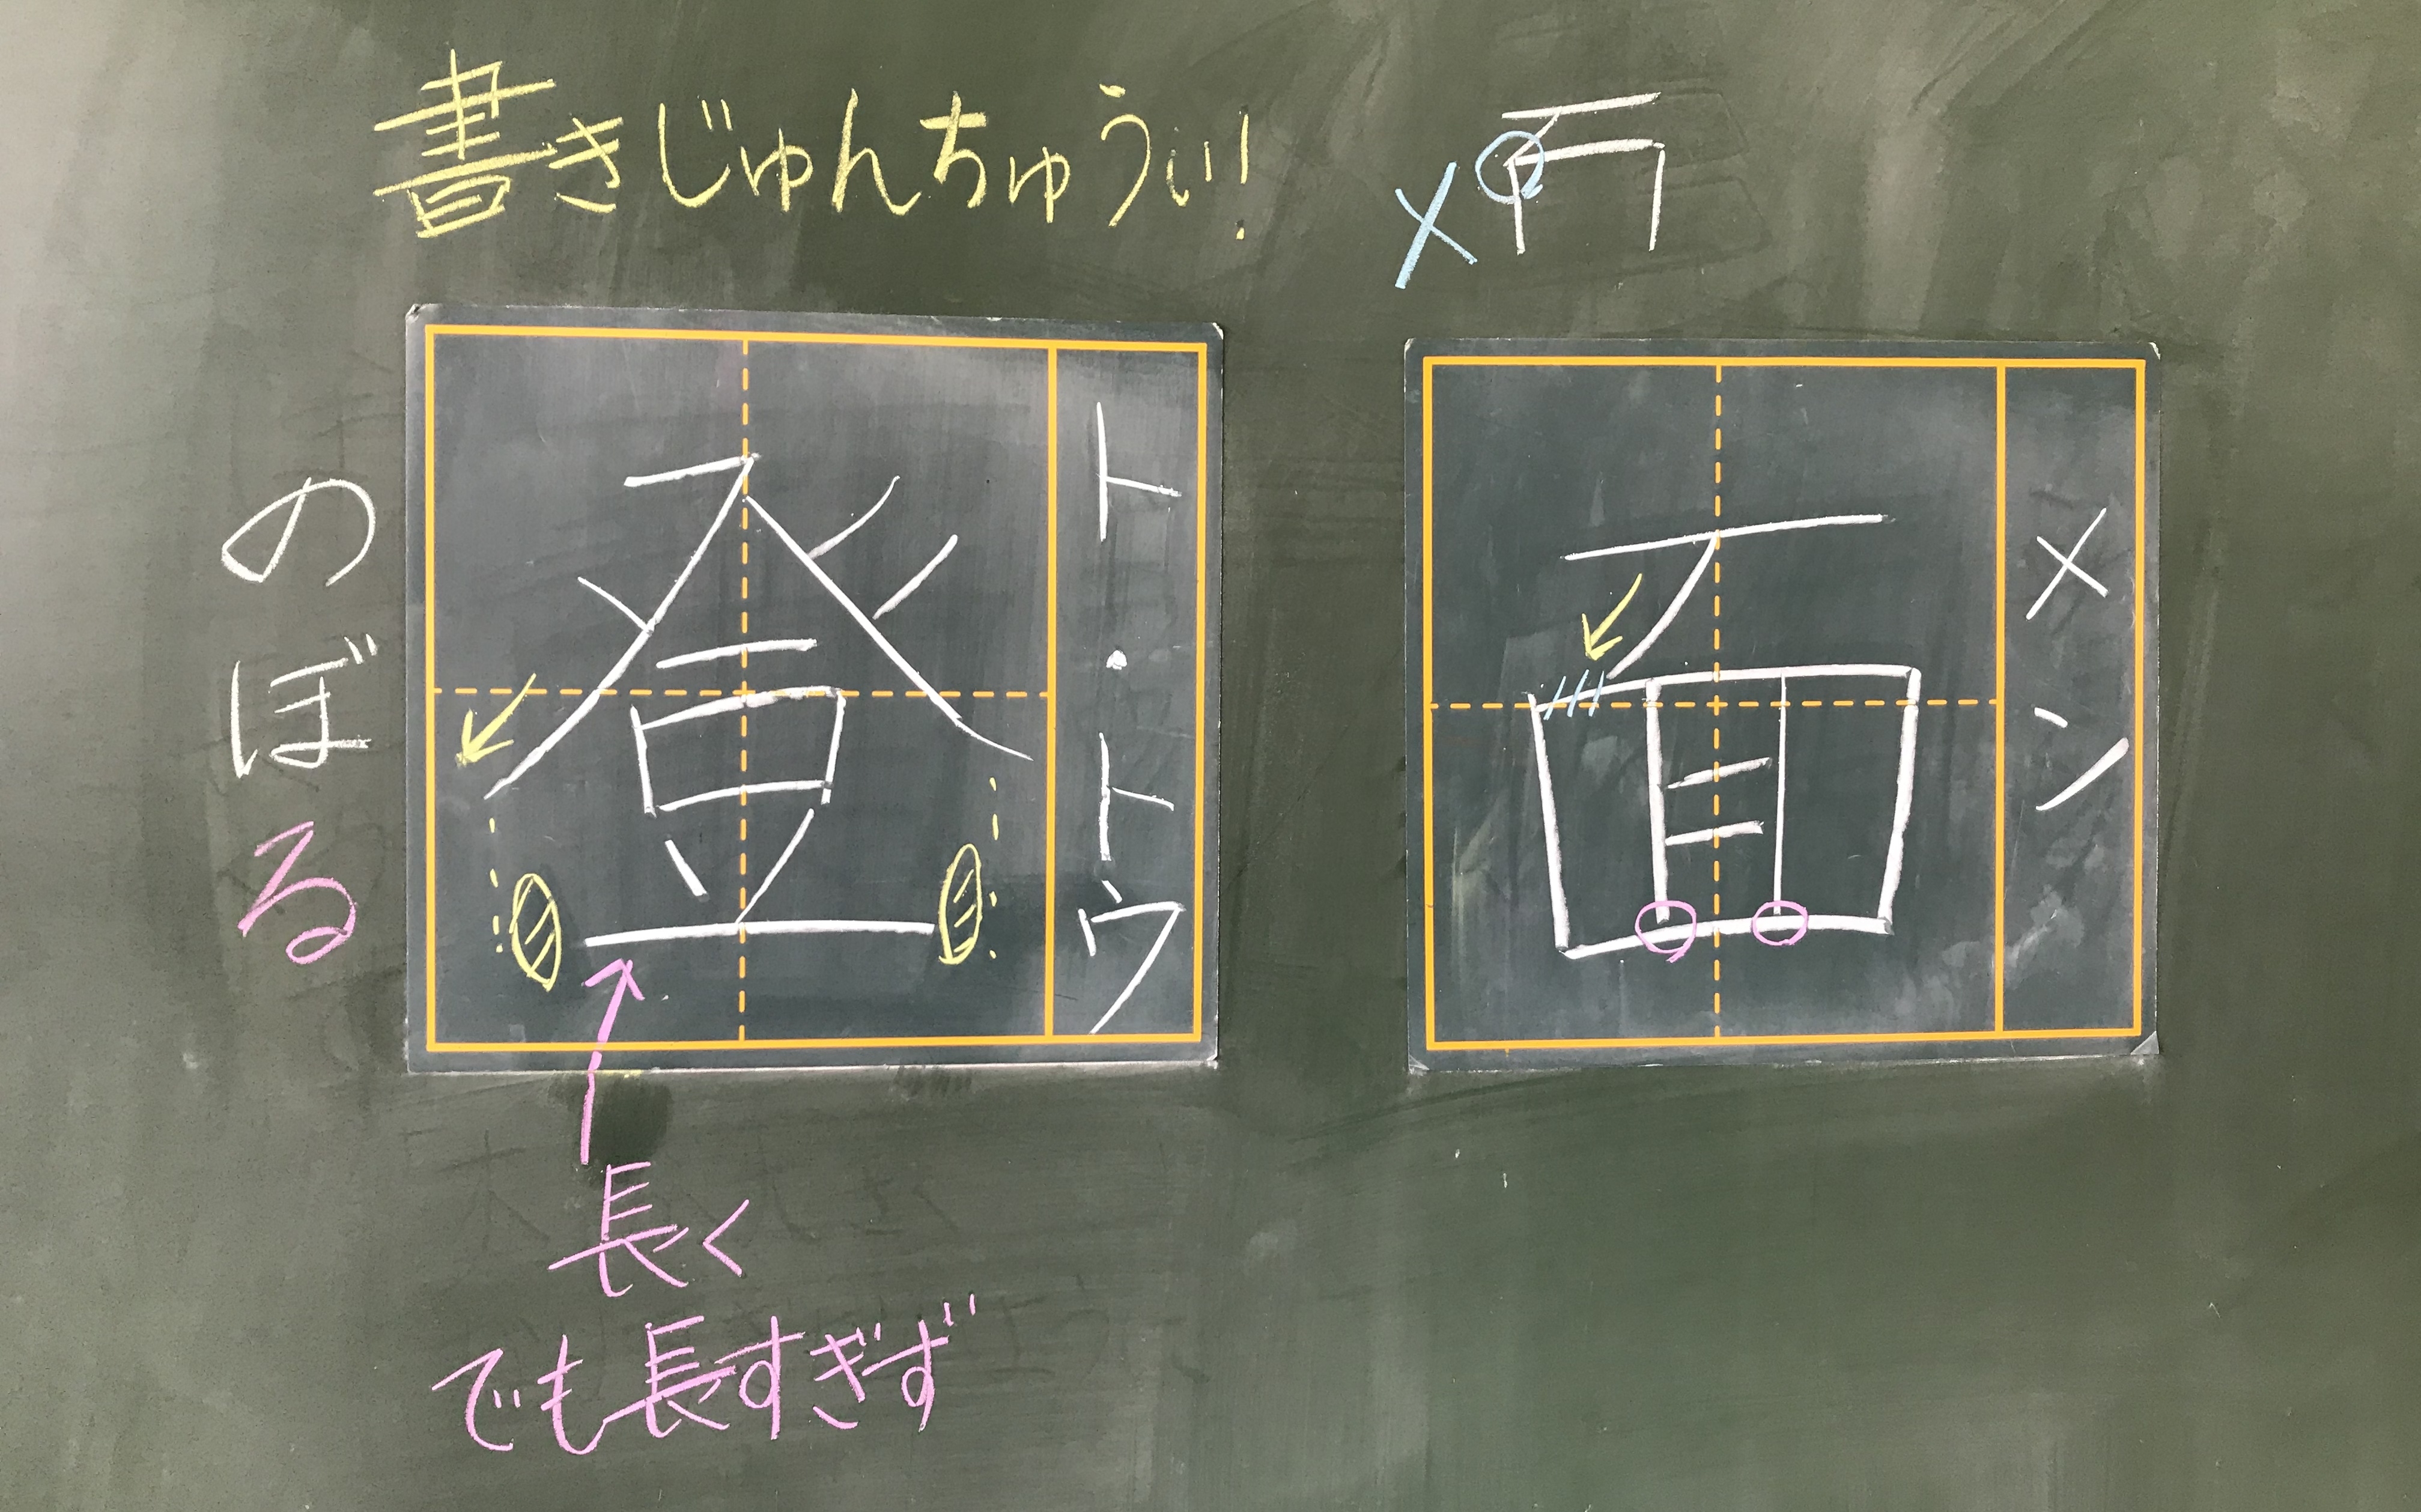 書きじゅんちゅうい!
×
登
ト・トウ
のぼる
長く
でも長すぎず
面
メン